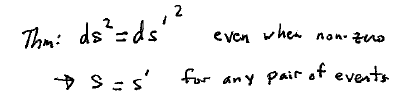 Thm: ds² = ds'² even when non-zero
→ s = s' for any pair of events